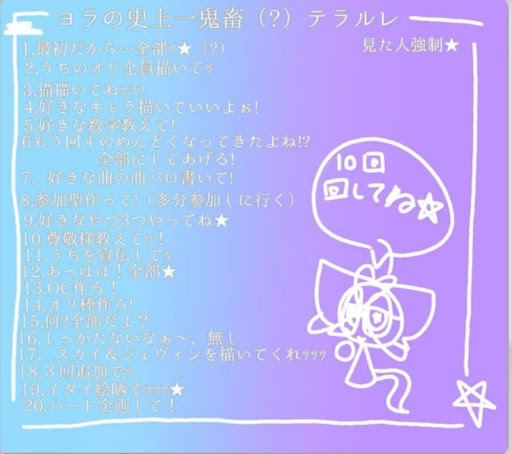 ヨラの史上一鬼畜（?）テラルレ
見た人強制★
1,最初だから…全部ｯ★（?）
2,うちのオリ全員描いてｯ
3,猫描いてねｯｯｯ
4,好きなキャラ描いていいよぉ!
5,好きな数字教えて!
6もう回すのめんどくなってきたよね!?
全部にしてあげる!
7、好きな曲の曲パロ書いて!
8,参加型作って!（多分参加しに行く）
9,好きなやつ3つやってね★
10,尊敬様教えてｯ!
11,うちを宣伝してｯ
12,あっはは！全部★
13,OC作る!
14,オリ棒作る!
15,何?全部だよ？
16,しっかたないなぁ〜、無し
17、スカイ＆ジェヴィンを描いてくれｯｯｯ
18,3回追加でｯ
19,イタイ絵晒そｯｯｯ★
20,ハート企画して！
10回
回してね☆